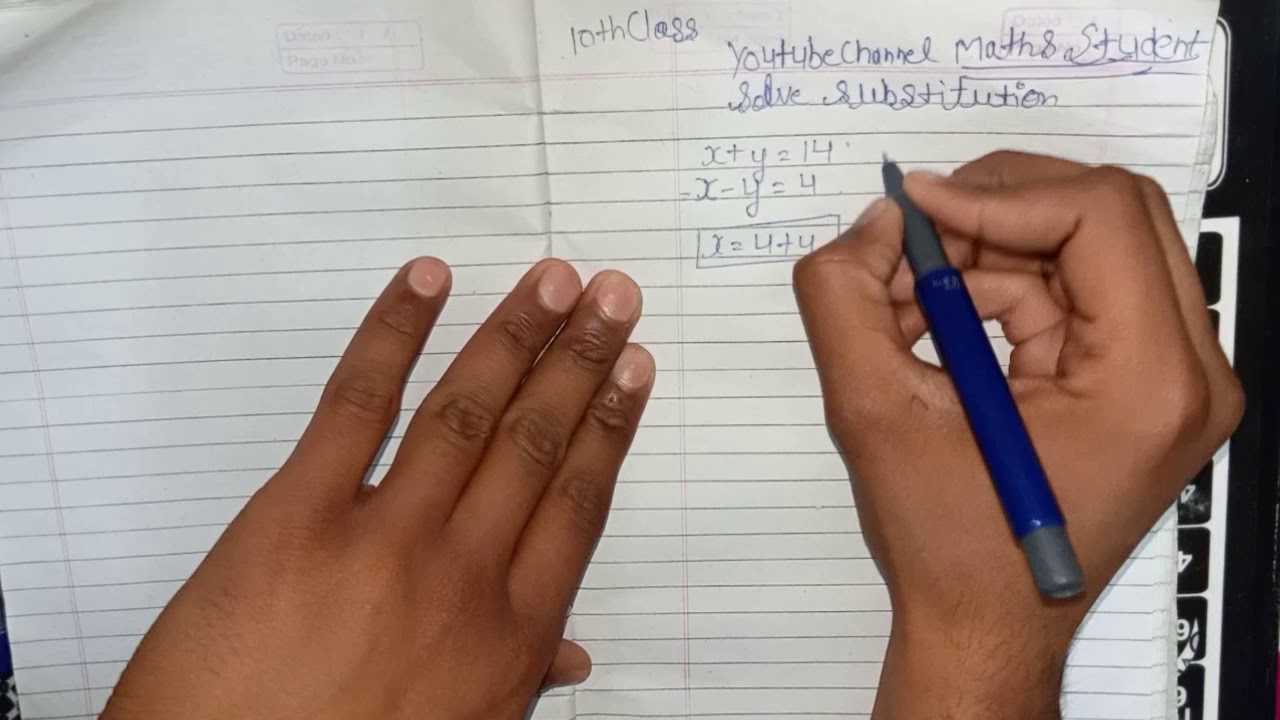 10thClass
Youtube Channel Maths Student
Solve Substitution
x+y=14
x-y=4
x=4+y